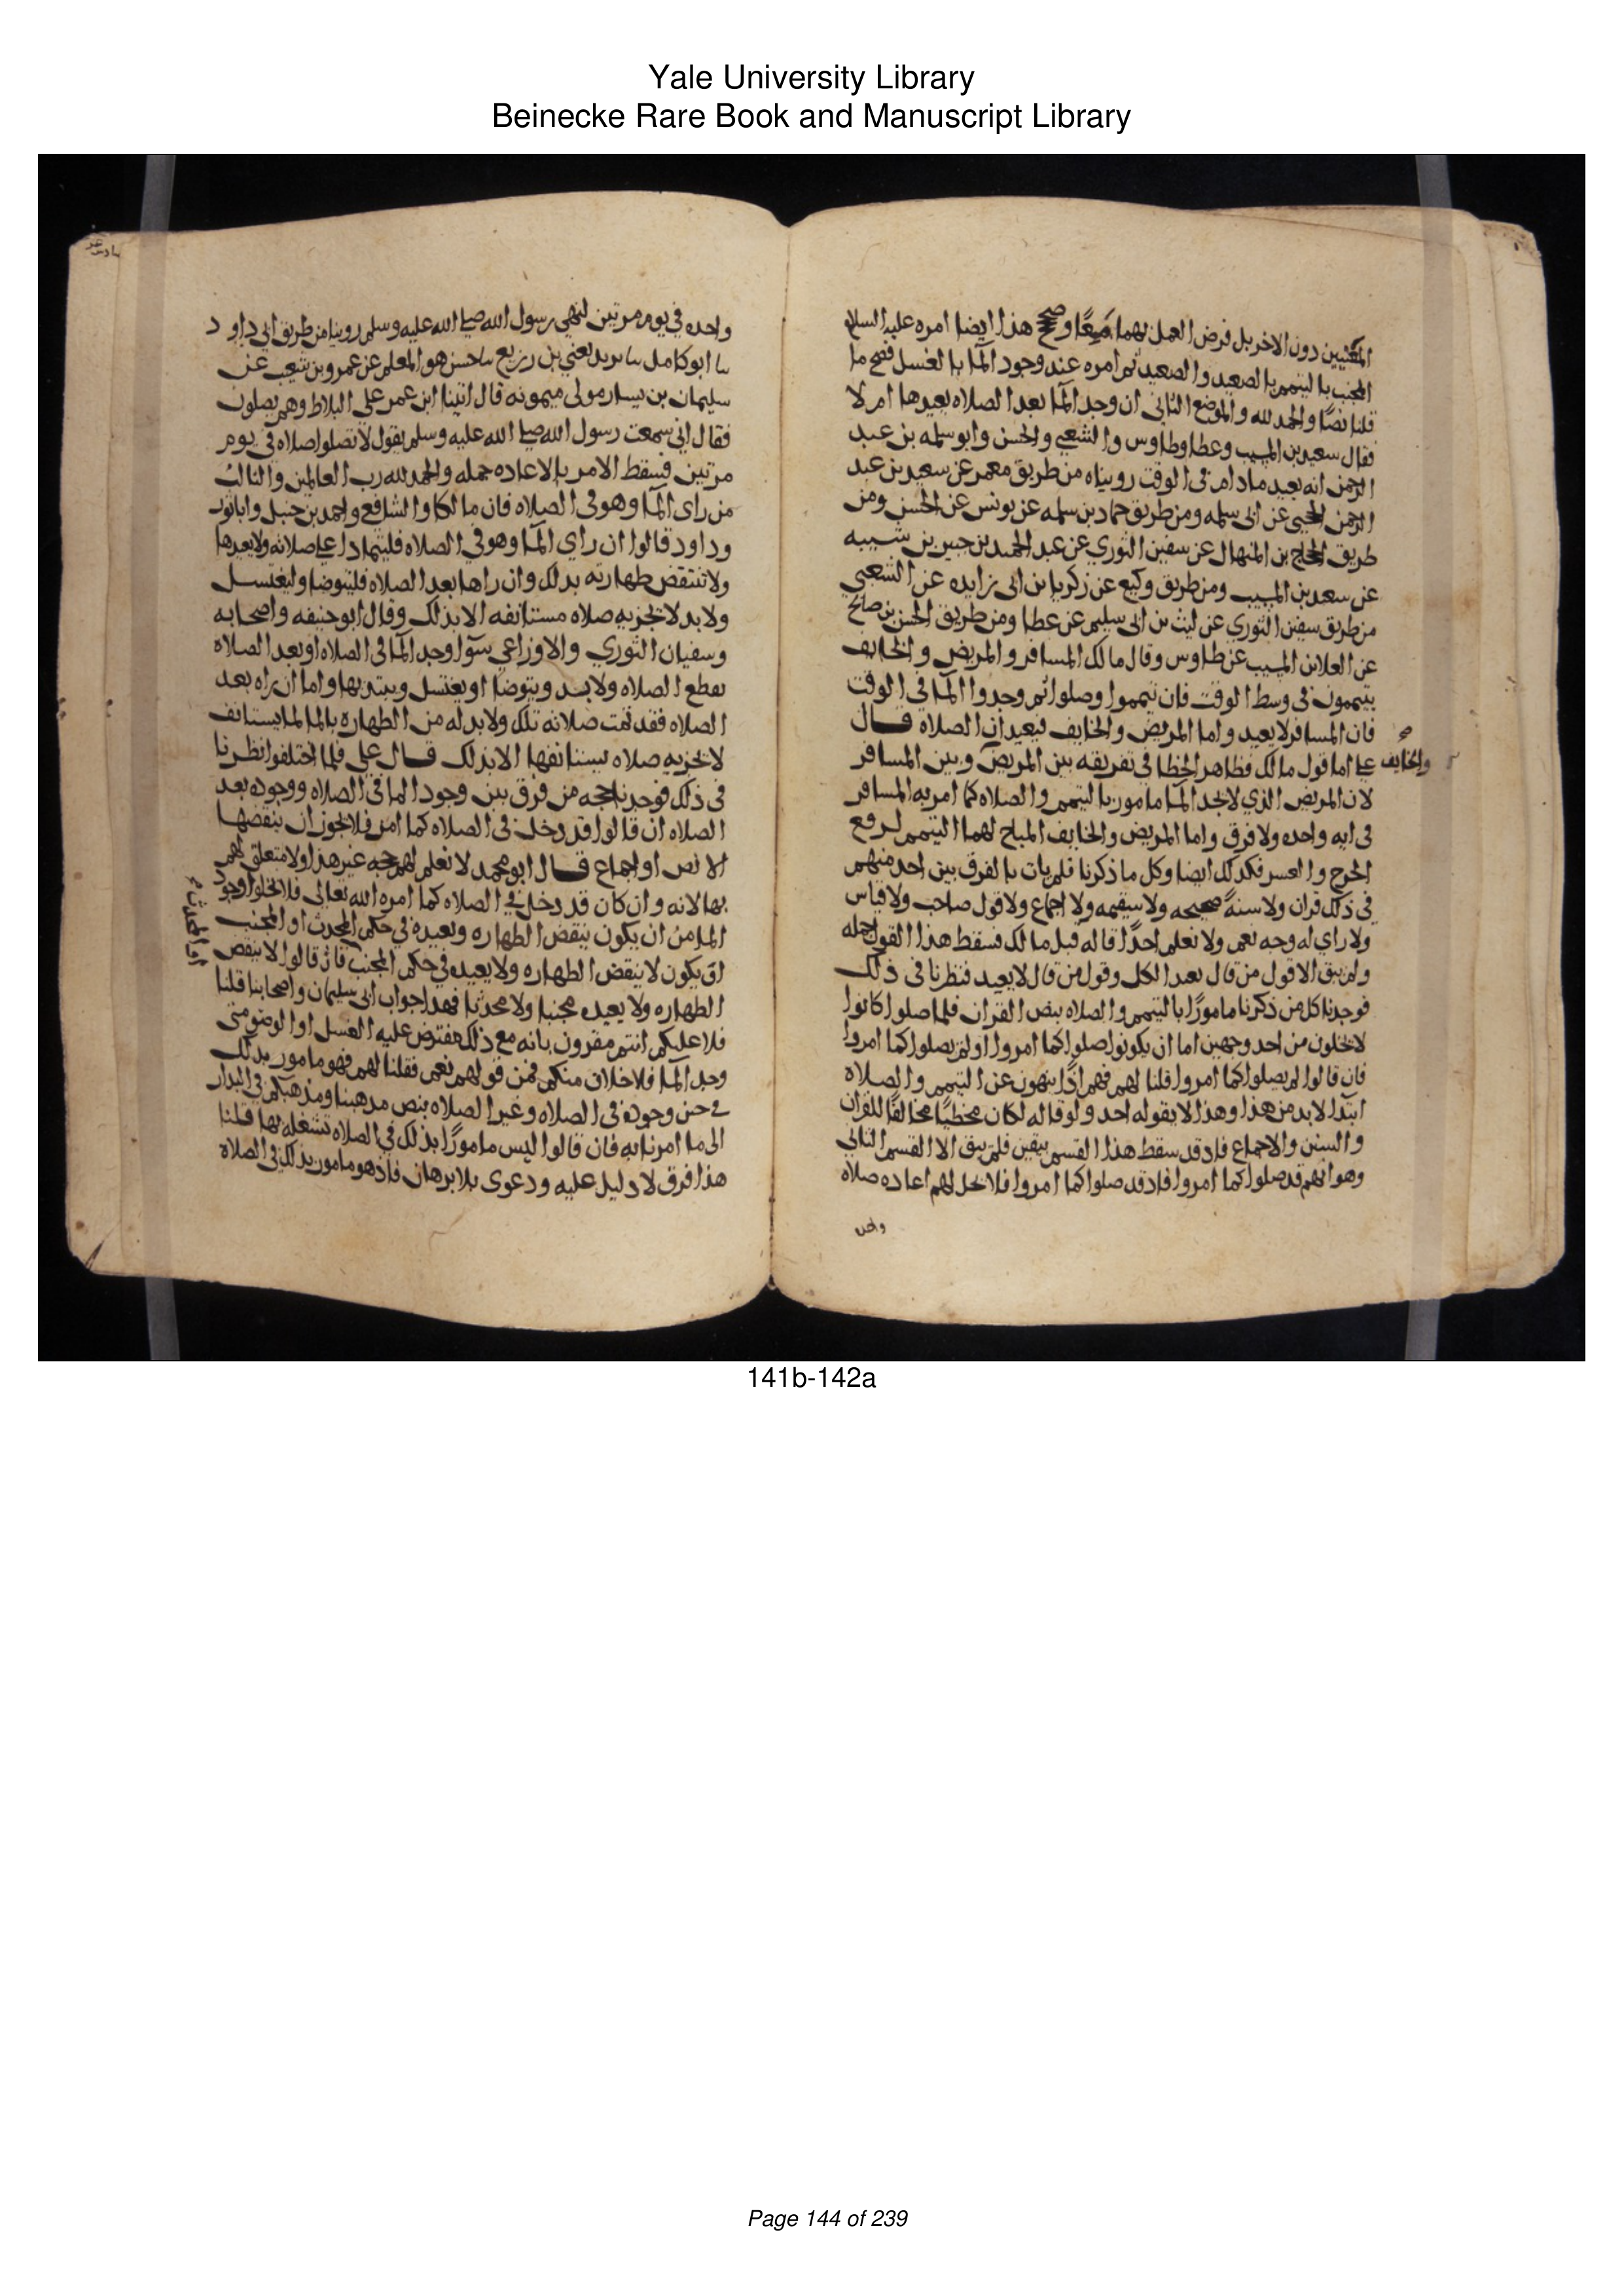 Yale University Library
Beinecke Rare Book and Manuscript Library
المعنيين دون الاخر بل فرض العمل بهما جميعًا وصح هذا ايضا امره عليه السلام
الجنب بالتيمم بالصعيد والصعيد ثم امره عند وجود الما بالغسل فصح ما
قلنا نصًا والحمد لله والموضع الثانى ان وجد الما بعد الصلاه يعيدها ام لا
فقال سعيد بن المسيب وعطا وطاوس والشعبي والحسن وابو سلمه بن عبد
الرحمن انه يعيد ما دام فى الوقت رويناه من طريق معمر عن سعيد بن عبد
الرحمن الجحبى عن ابى سلمه ومن طريق حماد بن سلمه عن يونس عن الحسن ومن
طريق الحجاج بن المنهال عن سفين الثوري عن عبد الحميد بن جبير بن شيبه
عن سعيد بن المسيب ومن طريق وكيع عن زكريا بن ابى زايده عن الشعبي
من طريق سفين الثوري عن ليث بن ابى سليم عن عطا ومن طريق الحسن بن صالح
عن العلا بن المسيب عن طاوس وقال مالك المسافر والمريض والخايف
يتيممون فى وسط الوقت فان تيمموا وصلوا ثم وجدوا الما فى الوقت
فان المسافر لا يعيد واما المريض والخايف فيعيدان الصلاة قال
على اما قول مالك فظاهر الخطا فى تفريقه بين المريض وبين المسافر
والخايف
لان المريض الذي لا يجد الما مامور بالتيمم والصلاه كما امر به المسافر
فى ايه واحده ولا فرق واما المريض والخايف المباح لهما التيمم لرفع
الحرج والعسر فكذلك ايضا وكل ما ذكرنا فلم يات بالفرق بين احد منهم
فى ذلك قران ولا سنةٌ صحيحه ولا سقيمه ولا اجماع ولا قول صاحب ولا قياس
ولا راي له وجه نعم ولا نعلم احدًا قاله قبل مالك فسقط هذا القول جمله
ولم يبق الا قول من قال يعيد الكل وقول من قال لا يعيد فنظرنا فى ذلك
فوجدنا كل من ذكرنا مامورًا بالتيمم والصلاه بنص القران فلما صلوا كانوا
لا يخلون من احد وجهين اما ان يكونوا صلوا كما امروا او لم يصلوا كما امروا
فان قالوا لم يصلوا كما امروا قلنا لهم فهم اذًا منهون عن التيمم والصلاه
ابتدا لا بد من هذا وهذا لا يقوله احد ولو قاله لكان مخطيًا مخالفًا للقران
والسنن والاجماع فاذ قد سقط هذا القسم بيقين فلم يبق الا القسم الثانى
وهو انهم قد صلوا كما امروا فاذ قد صلوا كما امروا فلا يحل لهم اعاده صلاه
واحده
واحده في يوم مرتين لنهي رسول الله صلى الله عليه وسلم روينا من طريق ابى داود
نا ابو كامل نا يزيد يعني بن زريع نا حسين هو المعلم عن عمرو بن شعيب عن
سليمان بن يسار مولى ميمونه قال اتينا ابن عمر على البلاط وهم يصلون
فقال اني سمعت رسول الله صلى الله عليه وسلم يقول لا تصلوا صلاه في يوم
مرتين فسقط الامر بالاعاده جمله والحمد لله رب العالمين والثالث
من راى الما وهو فى الصلاه فان مالكا والشافعي واحمد بن حنبل وابا ثور
وداود قالوا ان راي الما وهو في الصلاه فليتمادا على صلاته ولا يعيدها
ولا تنتقض طهارته بذلك وان راها بعد الصلاه فليتوضا وليغتسل
ولا بد لا تجزيه صلاه مستانفه الا بذلك وقال ابو حنيفه واصحابه
وسفيان الثوري والاوزاعي سوا وجد الما فى الصلاه او بعد الصلاه
يقطع الصلاه ولا بد ويتوضا او يغتسل ويبتديها واما ان راه بعد
الصلاه فقد تمت صلاته تلك ولا بد له من الطهاره بالما لما يستانف
لا تجزيه صلاه يستانفها الا بذلك قال علي فلما اختلفوا نظرنا
فى ذلك فوجدنا حجه من فرق بين وجود الما فى الصلاه ووجوده بعد
الصلاه ان قالوا قد دخل فى الصلاه كما امر فلا يجوز ان ينقضها
الا نص او اجماع قال ابو محمد لا نعلم لهم حجه غير هذا ولا متعلق لهم
بها لانه وان كان قد دخل في الصلاه كما امره الله تعالى فلا يخلوا وجود
الما من ان يكون ينقض الطهاره ويعيده في حكم المحدث او المجنب
او يكون لا ينقض الطهاره ولا يعيده في حكم المجنب فان قالوا لا ينقض
الطهاره ولا يعيده مجنبا ولا محدثا فهذا جواب ابى سليمان واصحابنا قلنا
فلا عليكم انتم مقرون بانه مع ذلك مفترض عليه الغسل او الوضو متى
وجد الما فلا خلاف منكم فمن قولهم نعم فقلنا لهم فهو مامور بذلك
في حين وجوده فى الصلاه وغير الصلاه بنص مذهبنا ومذهبكم في البدار
الى ما امرنا به فان قالوا ليس مامورًا بذلك في الصلاه تشغله بها قلنا
هذا فرق لا دليل عليه ودعوى بلا برهان فاذ هو مامور بذلك فى الصلاه
141b-142a
Page 144 of 239